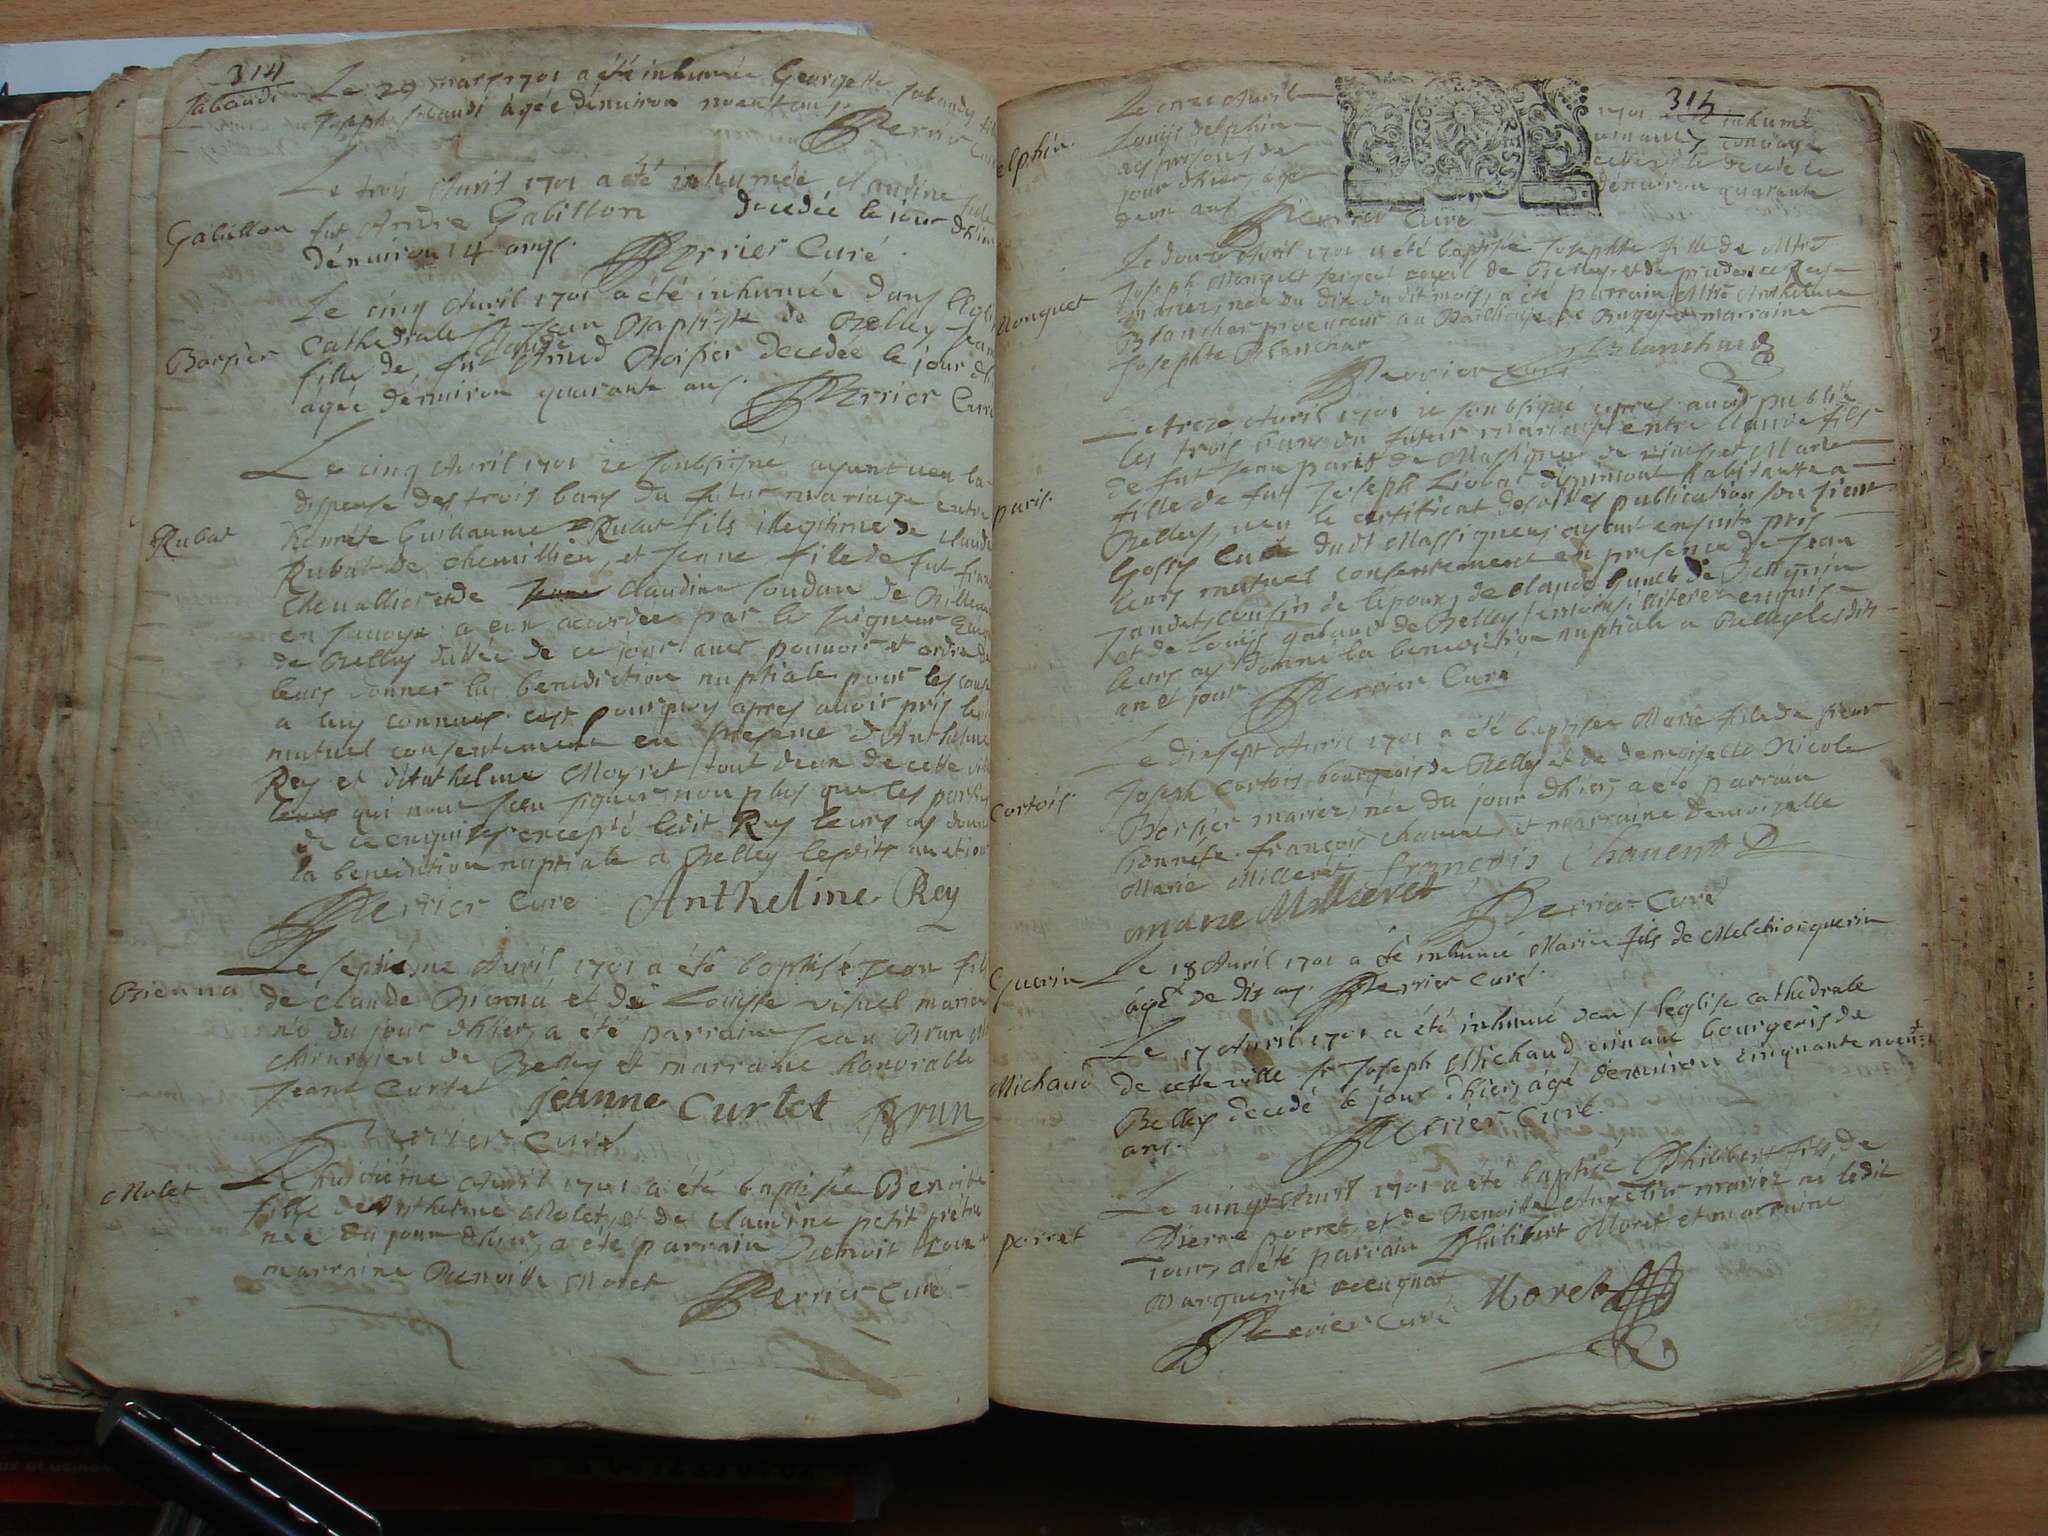 314
Jabaudi
Le 29 mars 1701 a été inhumée Georgette Jabaudy
Joseph Jabaudi àgée dénuiron
Perrier Curé
Gabillon
Le trois Auril 1701 a été inhumée Claudine
fut André Gabillon decedée le jour dhier
dénuiron 14 ans.
Perrier Curé
Barsier
Le cinq Auril 1701 a été inhumée dans l'Eglise
Cathedralle St Jean Baptiste de Belley
fille de fut decedée le jour
agée dénuiron quarante ans.
Perrier Curé
Rubat
Le cinq Auril 1701 ie soubsigné ayant ueu la
dispense des trois bans du futur mariage entre
honnéte Guillaume Rubat fils illegitime de Claude
Rubat de Chemillieu, et Jenne fille de fut
Cheuallier et de Claudine Goudan de
en sauoye a eux accordée par le seigneur
de Belley dattée de ce jour auec pouuoir et ordre de
leurs donner la benediction nuptiale pour les
a luy connues cest pourquoy apres auoir pris leur
mutuel consentement en presence d'Anthelme
Rey et d'Anthelme Moyret tout deux de cette ville
qui nont sceu signer non plus que les parties
de ce enquises excepté ledit Rey leurs ay donné
la benediction nuptiale a Belley lesdits an et jour
Perrier Curé Anthelme Rey
Bienna
Le septiéme Auril 1701 a été baptisé Jean fils
de Claude Bienna et de Louyse mariez
né du jour dhier, a été parrain Jean Brun
Chirurgien de Belley et marraine honorable
Jeane Curtet
jeanne Curtet Brun
Perrier Curé
Molet
Le huitiéme Auril 1701 a été baptisée Benoite
fille de Anthelme Molet, et de Claudine petit
née du jour dhier, a été parrain Benoit
marraine Benoite Molet
Perrier Curé
314
delphin.
Le onze Auril 1701 a été inhumé
Louys delphin
des prisons de decedé le
jour dhier, agé dénuiron quarante
deux ans
Perrier Curé
Monguet
Le douze Auril 1701 a été baptisée Josephte fille de Mtre
Joseph Monguet sergent royal de Belley et de prudence Rey
mariez, née du dix dudit mois, a été parrain Mtre Anthelme
Blanchar procureur au Bailliage de Bugey et marraine
Josephte Blanchar
Perrier Curé Blanchard
paris.
Le treze Auril 1701 ie soubsigné apres auoir publié
les trois bans du futur mariage entre Claude fils
de fut Jean paris de Massignieu de riues et Marie
fille de fut Joseph habitante a
Belley, ueu le certificat desdites publication du sieur
Curé dudt Massignieu, ayant ensuite pris
leurs mutuel consentement en presence de Jean
Jandet, cousin de lepoux, de Claude
et de Louys de Belley temoins illiterez enquis
leurs ay donné la benediction nuptiale a Belley lesdits
an et jour
Perrier Curé
Cortois
Le diesept Auril 1701 a été baptisée Marie fille de sieur
Joseph Cortois bourgeois de Belley et de demoiselle Nicole
Bersier mariez, née du jour dhier, a été parrain
honnéte françois Chauuent et marraine demoizelle
Marie Milleret
francois Chauent
marie Millieret
Perrier Curé
Guerin
Le 18 Auril 1701 a été inhumé Marin fils de Melchior guerin
àgé de dix ans.
Perrier Curé.
Michaud
Le 17 Auril 1701 a été inhumé dans l'église cathedrale
de cette ville Sr Joseph Michaud bourgeois de
Belley decedé le jour dhier, àgé dénuiron cinquante neuf
ans.
Perrier Curé.
perret
Le uingt Auril 1701 a été baptisé Philibert fils de
Pierre perret, et de Benoite mariez né ledit
jour, a été parrain Philibert Moret et marraine
Marguerite
Perrier Curé Moret